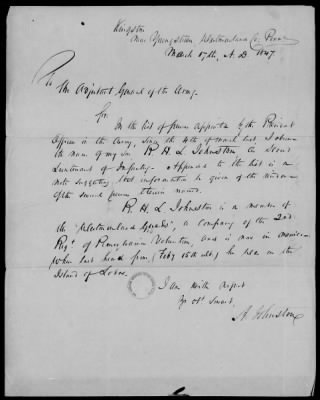 Kingston
near Youngstown Westmoreland Co. Penna
March 17th, A.D. 1847
To the Adjutant General of the Army.
Sir.
In the list of persons appointed by the President
Officers in the Army, since the 4th of march last I observe
the name of my son R. H. L. Johnston as Second
Lieutenant of Infantry. Appended to the list is a
note suggesting that information be given of the
of the several persons therein named.
R. H. L. Johnston is a member of
the "Westmoreland Guards", a Company of the 2nd
Regt of Pennsylvania Volunteers, and is now in mexico
when last heard from, (Feby 15th ult) he was on the
Island of Lobos.
I am with respect
Yr obt Servant,
A. Johnston